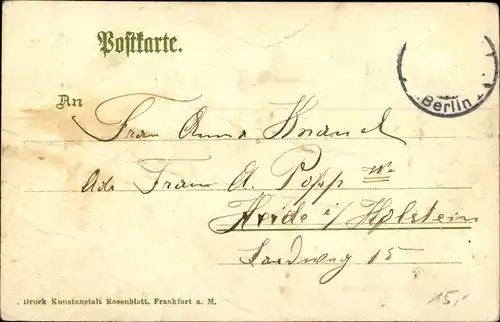 Postkarte.
Berlin
An
Frau Anna Knauel
Adr Frau A. Popp We
Heide i/Holstein
Landweg 15
. Druck Kunstanstalt Rosenblatt, Frankfurt a. M.
15,-